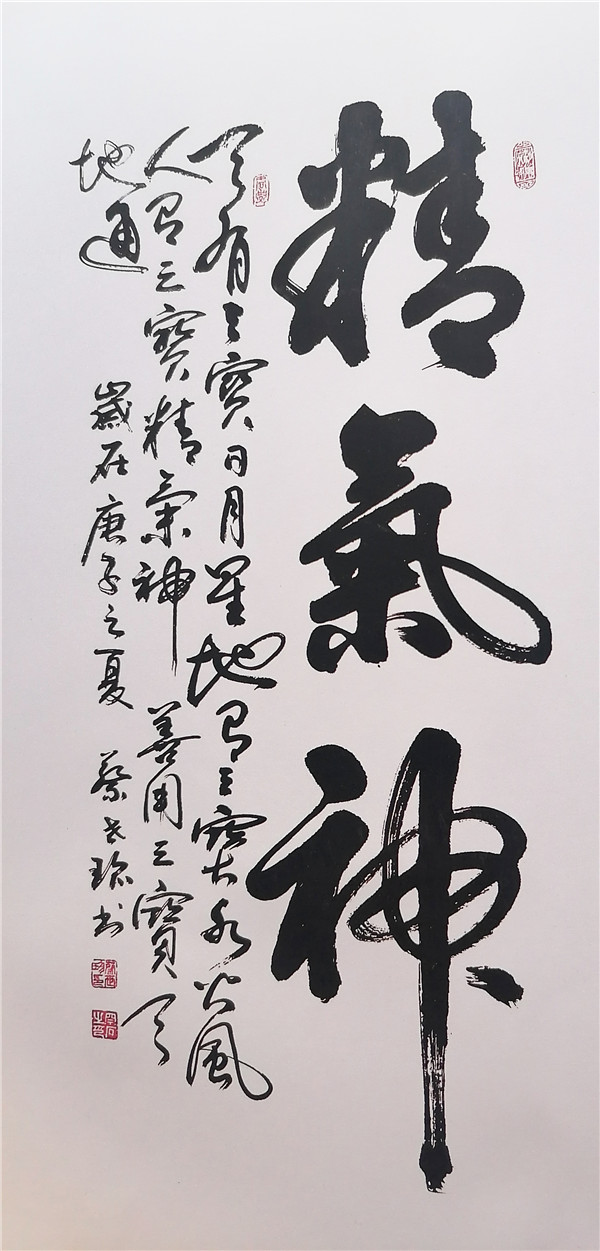 精氣神
天有三寶日月星地有三寶水火風
人有三寶精氣神善用三寶天
地通 歲在庚子之夏 蔡书